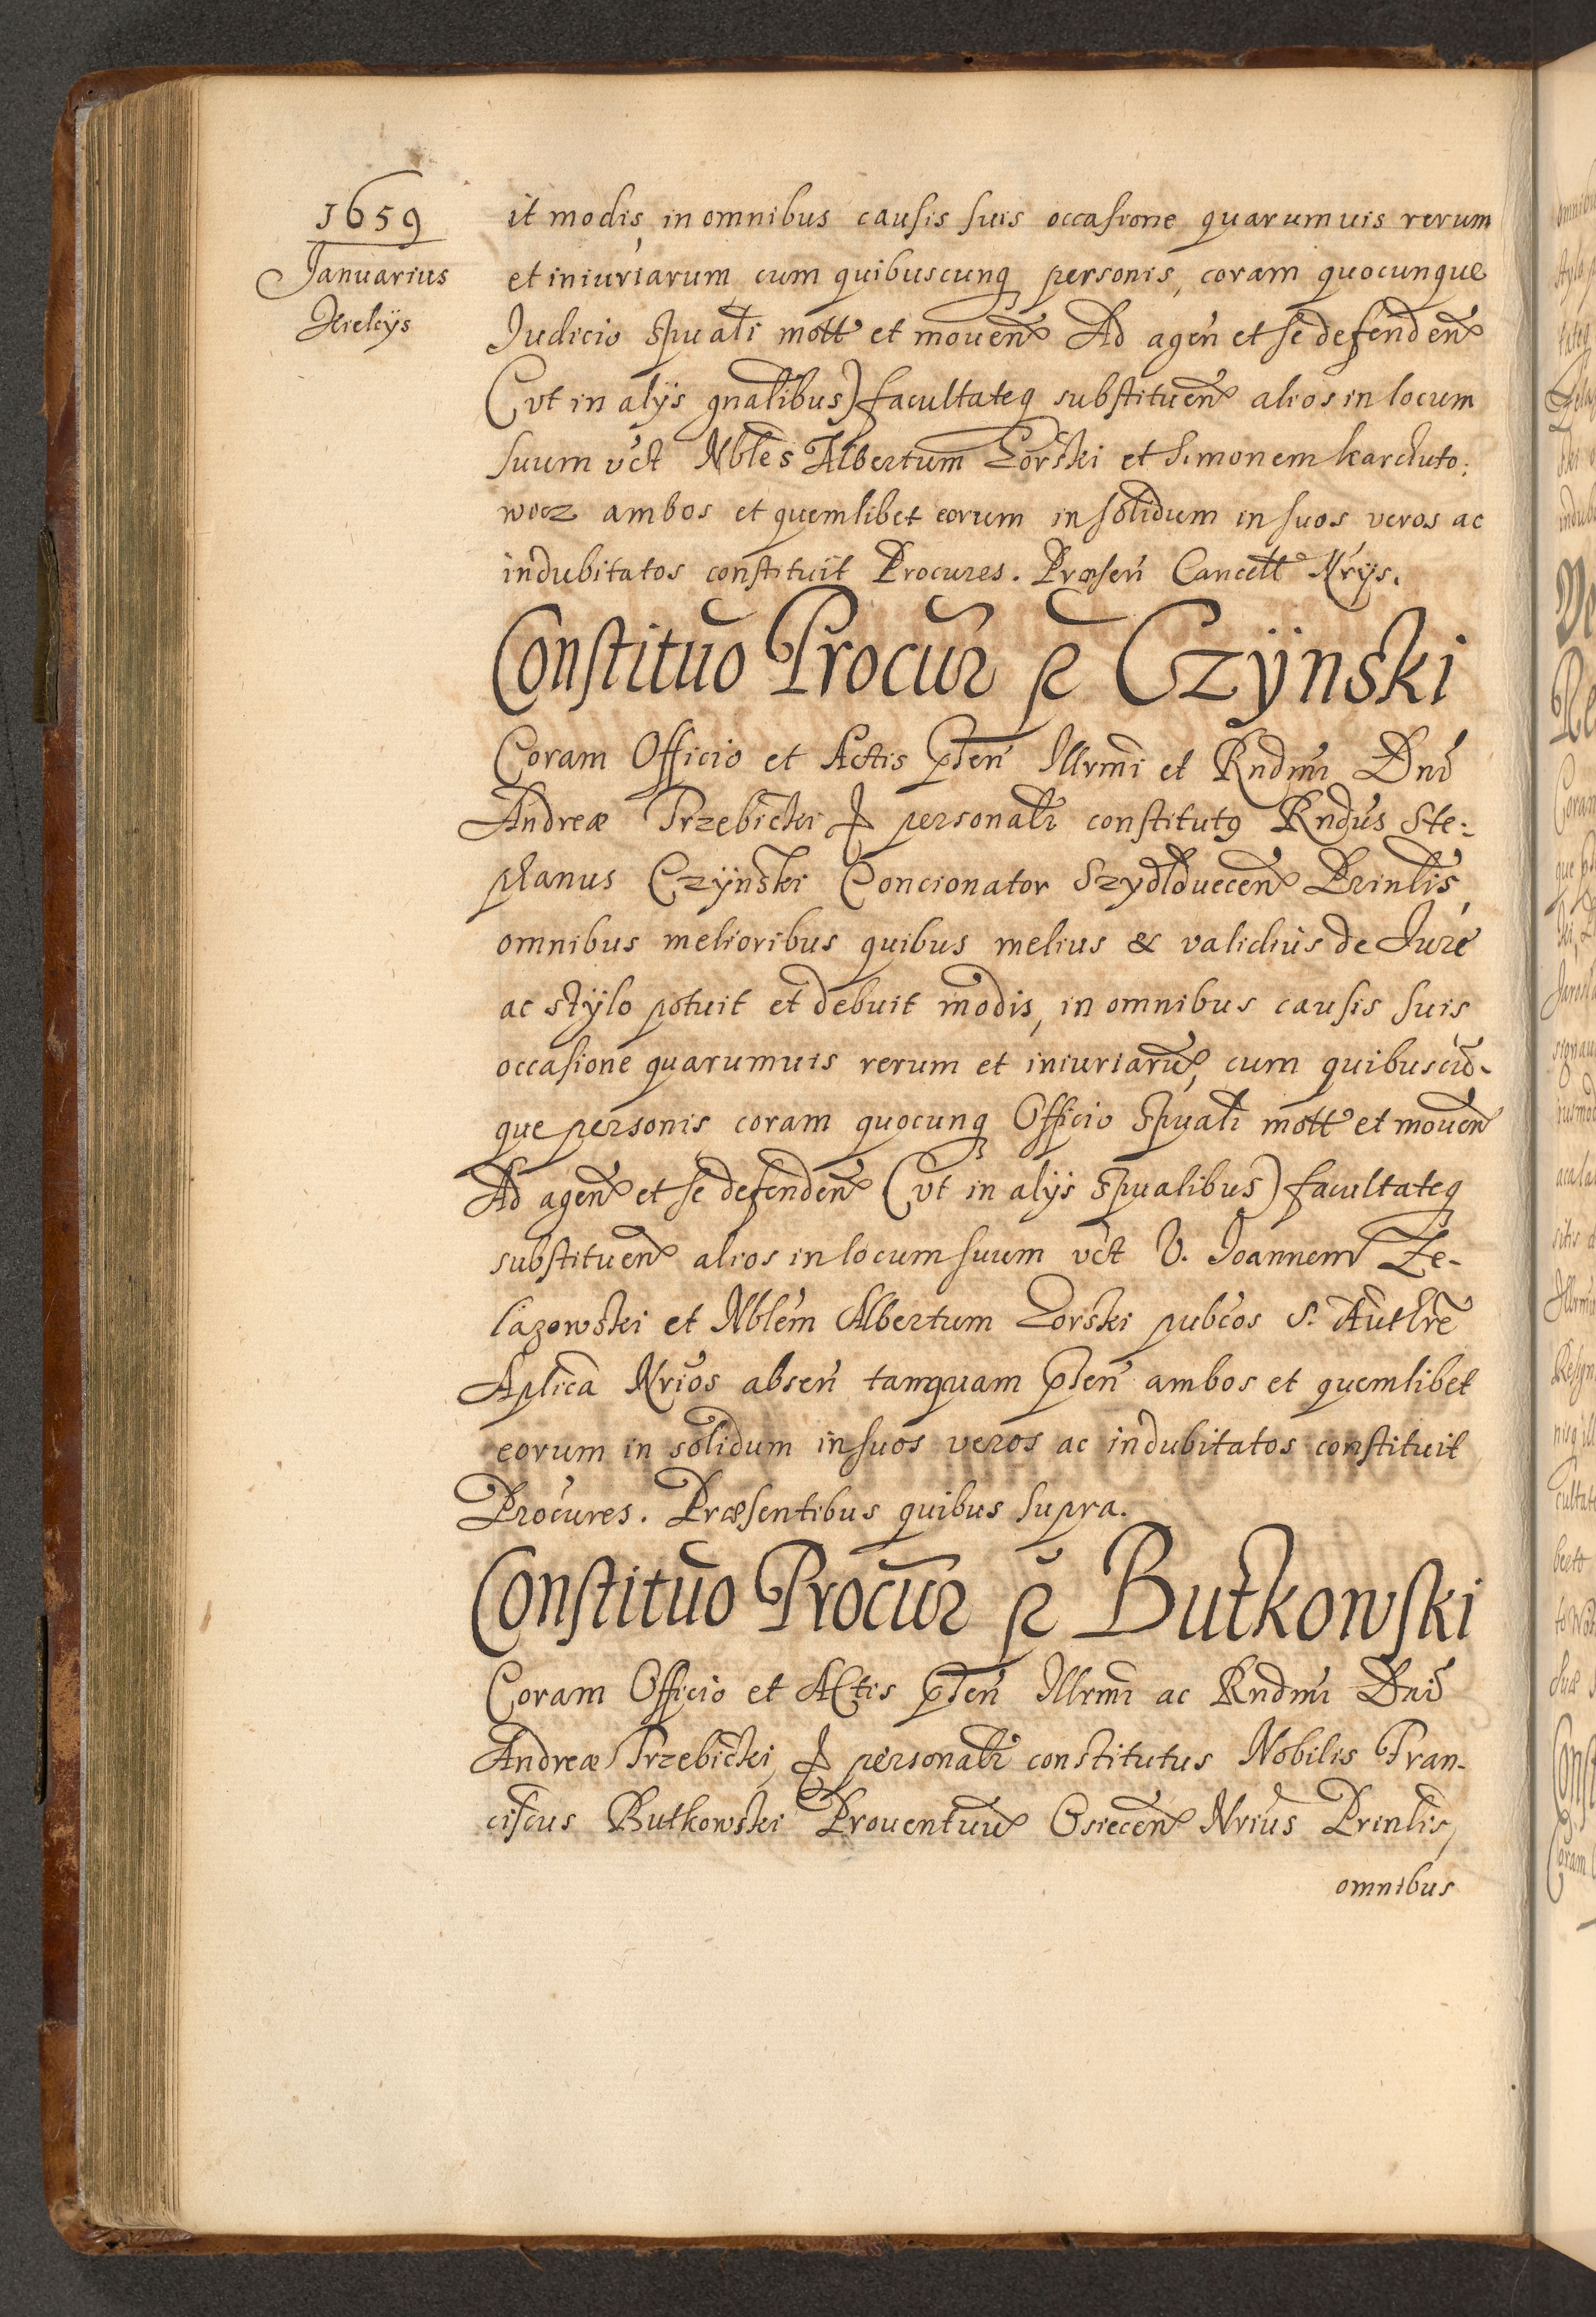 1659
Januarius
Kielcÿs
it modis, in omnibus causis suis occasione quarumuis rerum
et iniuriarum, cum quibuscunq personis, coram quocunque
Judicio Spuali mott et mouen Ad agen et se defenden
(vt in alÿs gnalibus) facultateq substituen alios in locum
suum vct Nbles Albertum Gorski et Simonem karchuto:
wicz ambos et quemlibet eorum in solidum in suos veros ac
indubitatos constituit Procures. Præsen Cancell Nrÿs.
Constituo Procur p Czÿnski
Coram Officio et Actis pñten Illrmi et Rndmi Dni
Andreæ Trzebicki & personalr constitutq Rndus Ste:
phanus Czÿnski Concionator Szydlouecen Prinlis,
omnibus melioribus quibus melius & validius de Jure
ac stÿlo potuit et debuit modis, in omnibus causis suis
occasione quarumuis rerum et iniuriaru, cum quibuscu-
que personis coram quocunq Officio Spuali mott et mouen
Ad agen et se defenden (vt in alÿs Spualibus) facultateq
substituen alios in locum suum vct V. Joannem Ze-
lazowski et Nblem Albertum Gorski pubcos S. Authre
Aplica Nrios absen tanquam pñten ambos et quemlibet
eorum in solidum in suos veros ac indubitatos constituit
Procures. Præsentibus quibus supra.
Constituo Procur p Butkowski
Coram Officio et Actis pñten Illrmi ac Rndmi Dni
Andreæ Trzebicki, & personalr constitutus Nobilis Fran-
ciscus Butkowski Prouentuu Osiecen Nrius Prinlis,
omnibus